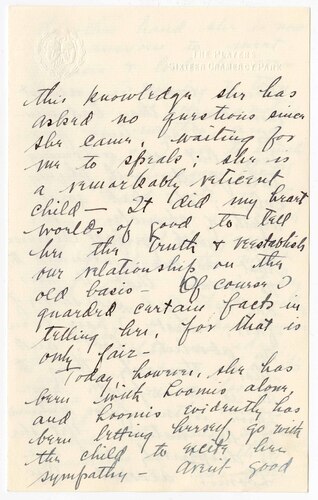 THE PLAYERS
SIXTEEN GRAMERCY PARK
this knowledge she has
asked no questions since
she came, waiting for
me to speak; she is
a remarkably reticent
child— It did my heart
worlds of good to tell
her the truth & reestablish
our relationship on the
old basis— Of course I
guarded certain facts in
telling her, for that is
only fair—
Today, however, she has
been with Loomis alone,
and Loomis evidently has
been letting herself go with
the child to excite her
sympathy— Arent good